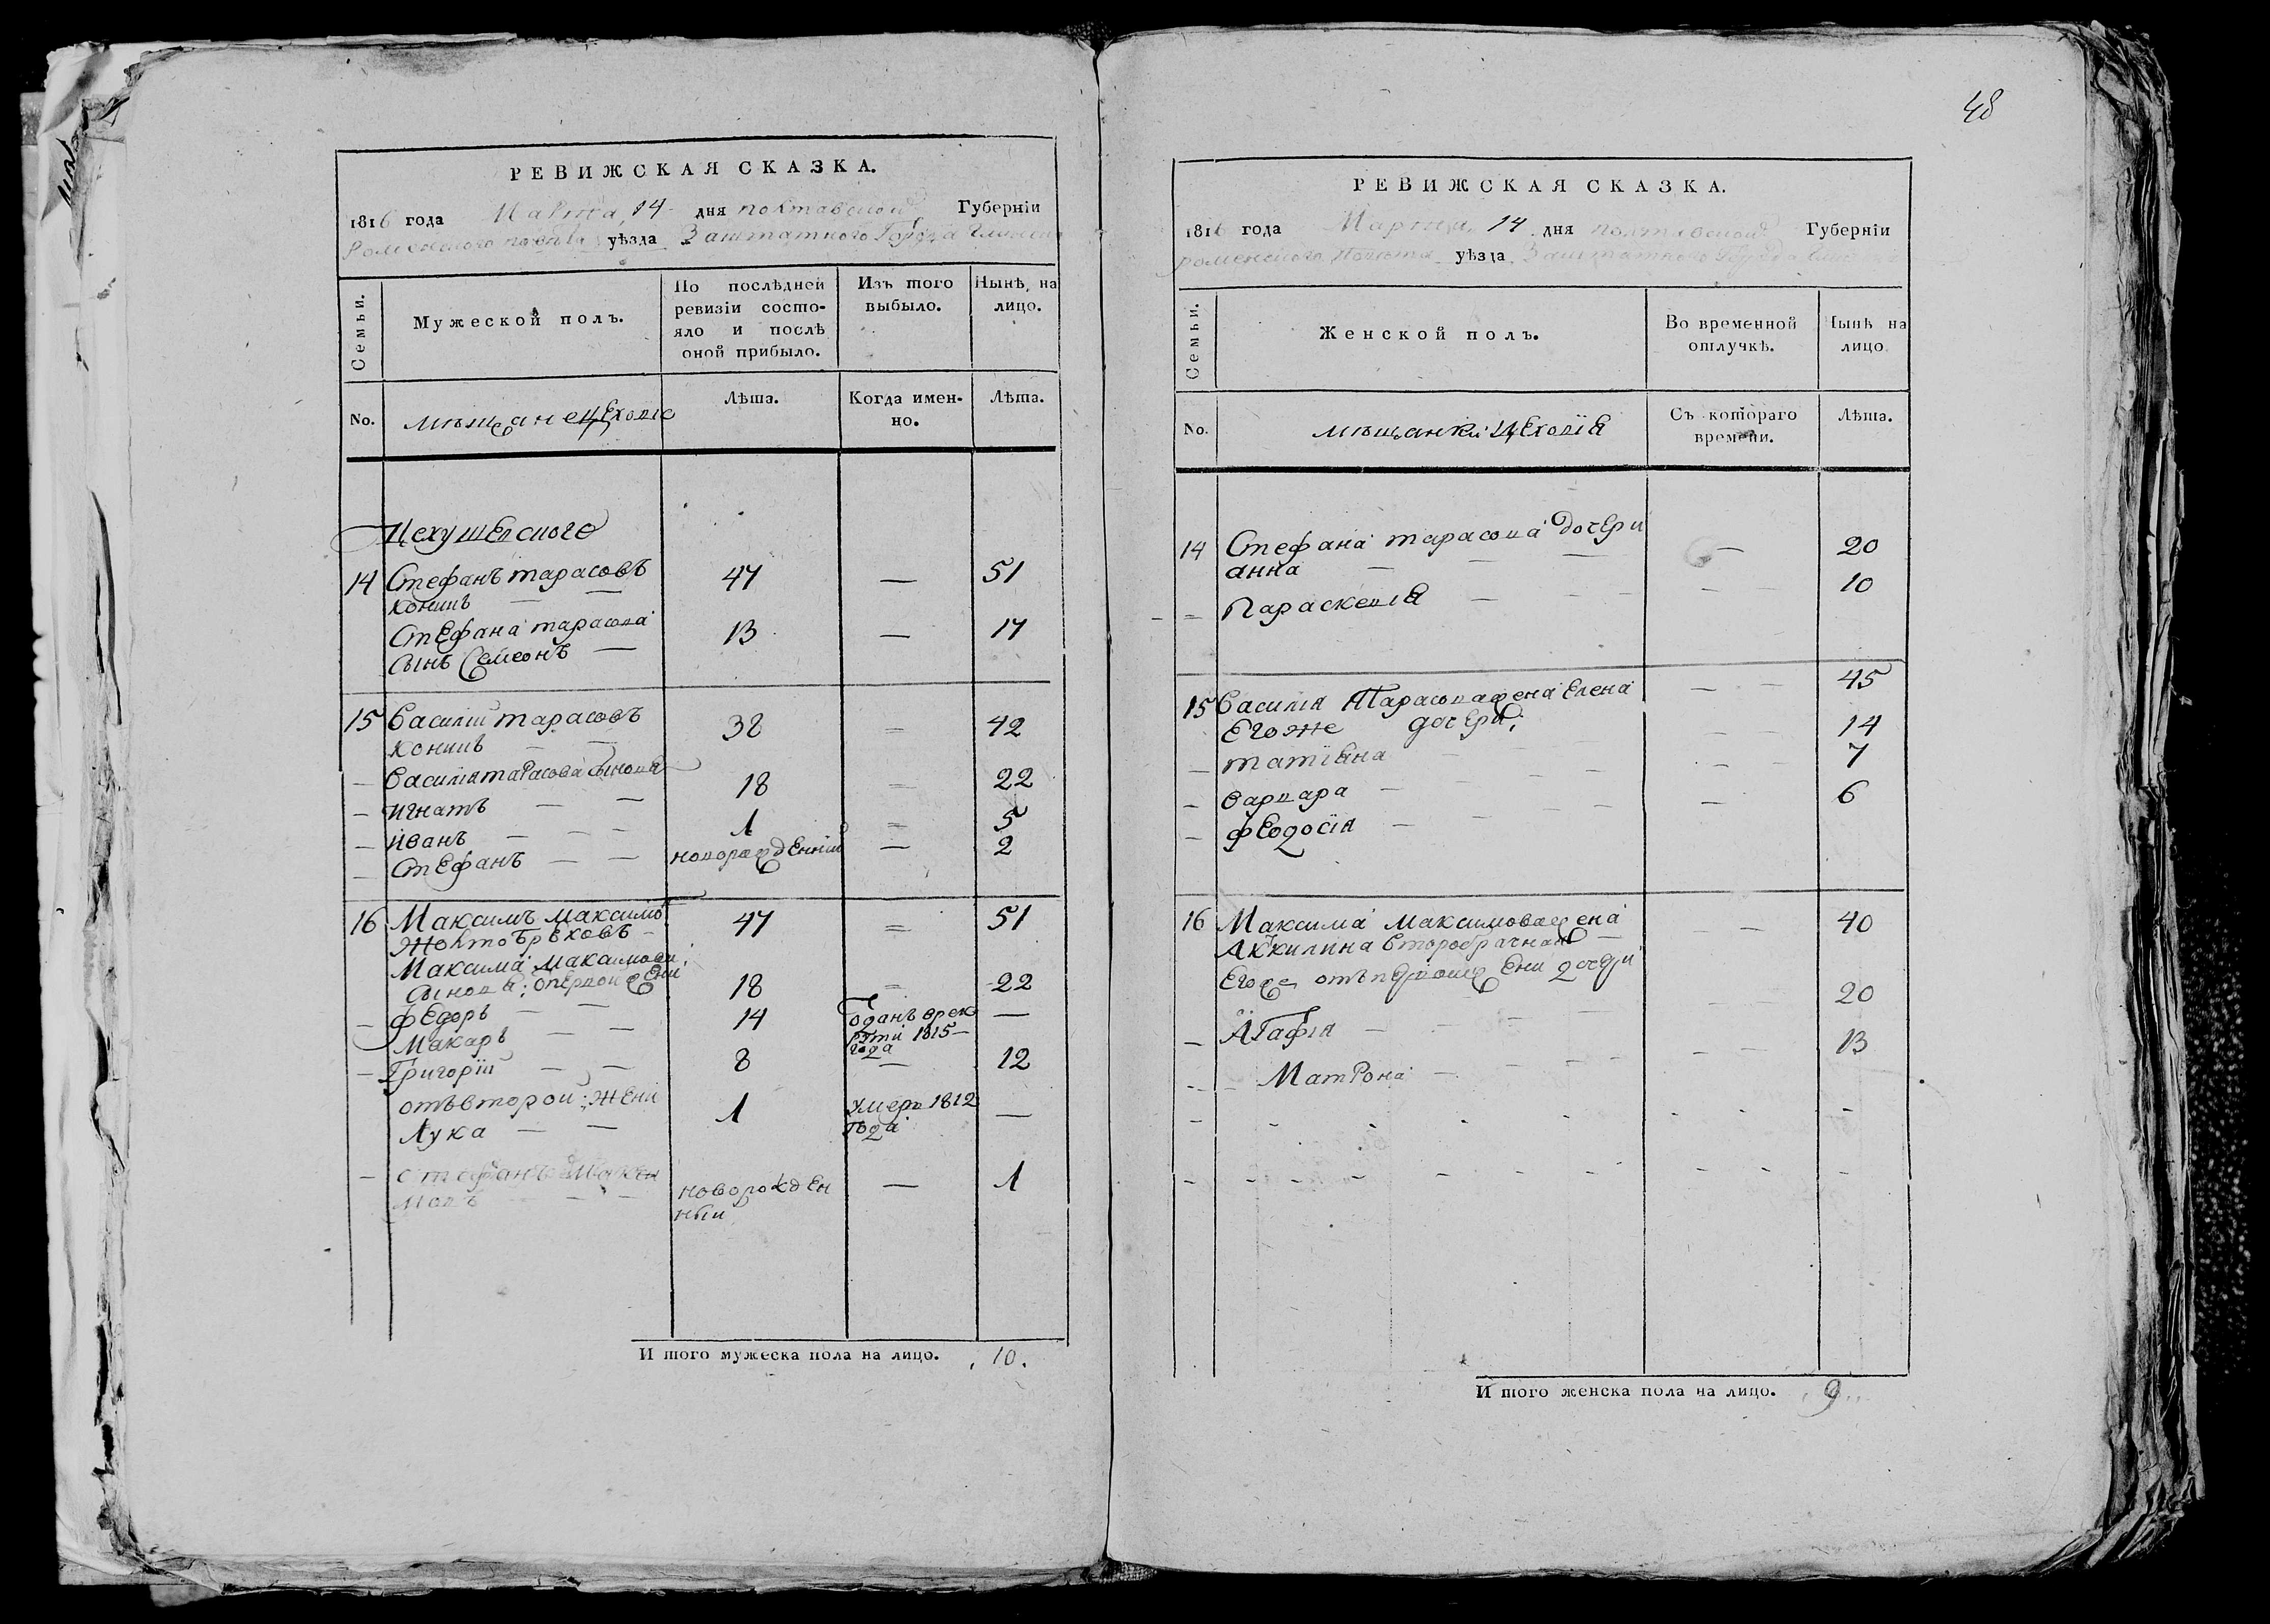 РЕВИЖСКАЯ СКАЗКА.
1816 года Марта 14 дня полтавской Губерніи
Роменского повѣта уѣзда Заштатного Города Глинска
Семьи.
Мужеской полъ.
По послѣдней ревизіи состояло и послѣ оной прибыло.
Изъ того выбыло.
Нынѣ на лицо.
No.
мѣщане цеховіе
Лѣта.
Когда именно.
Лѣта.
Цеху шевского
14 Стефанъ тарасовъ 47 — 51
Стефана тарасова 13 — 17
сынъ Семеонъ —
15 Василій тарасовъ 38 = 42
— Василія тарасова сынова
— игнатъ — — 18 = 22
— иванъ — — — 1 = 5
— Стефанъ — — новорожденній — 2
16 Максимъ максимо 47 = 51
Жовтобрѣховъ —
Максима максимова
сынова: отпервой жени
— федоръ — — 18 = 22
Макаръ — — 14 —
отданъ врек
рути 1815 —
года
— Григорій — — 8 — 12
отъвторой: жени
Лука — — 1 умеръ 1812 —
года
— стефанъ максимовъ
новорожден — 1
ный
И того мужеска пола на лицо. 10.
48
РЕВИЖСКАЯ СКАЗКА.
1816 года Марта 14 дня полтавской Губерніи
роменского Повѣта уѣзда Заштатного Города
Семьи.
Женской полъ.
Во временной отлучкѣ.
Нынѣ на лицо
No.
мѣщанки цеховія
Съ котораго времени.
Лѣта.
14 Стефана тарасова дочери
анна — — — — 20
— = Параскевія — — — — — 10
15 Василія Тарасова жена Елена — — 45
Егоже дочери:
— татіяна — — — — — 14
— варвара — — — — — 7
— феодосія — — — — 6
16 Максима максимова жена — — 40
Акилина второбрачная —
Егоже отъпервои жени дочери
— Агафія — — — — — 20
— — Матрона — — — — — 13
И того женска пола на лицо. 9